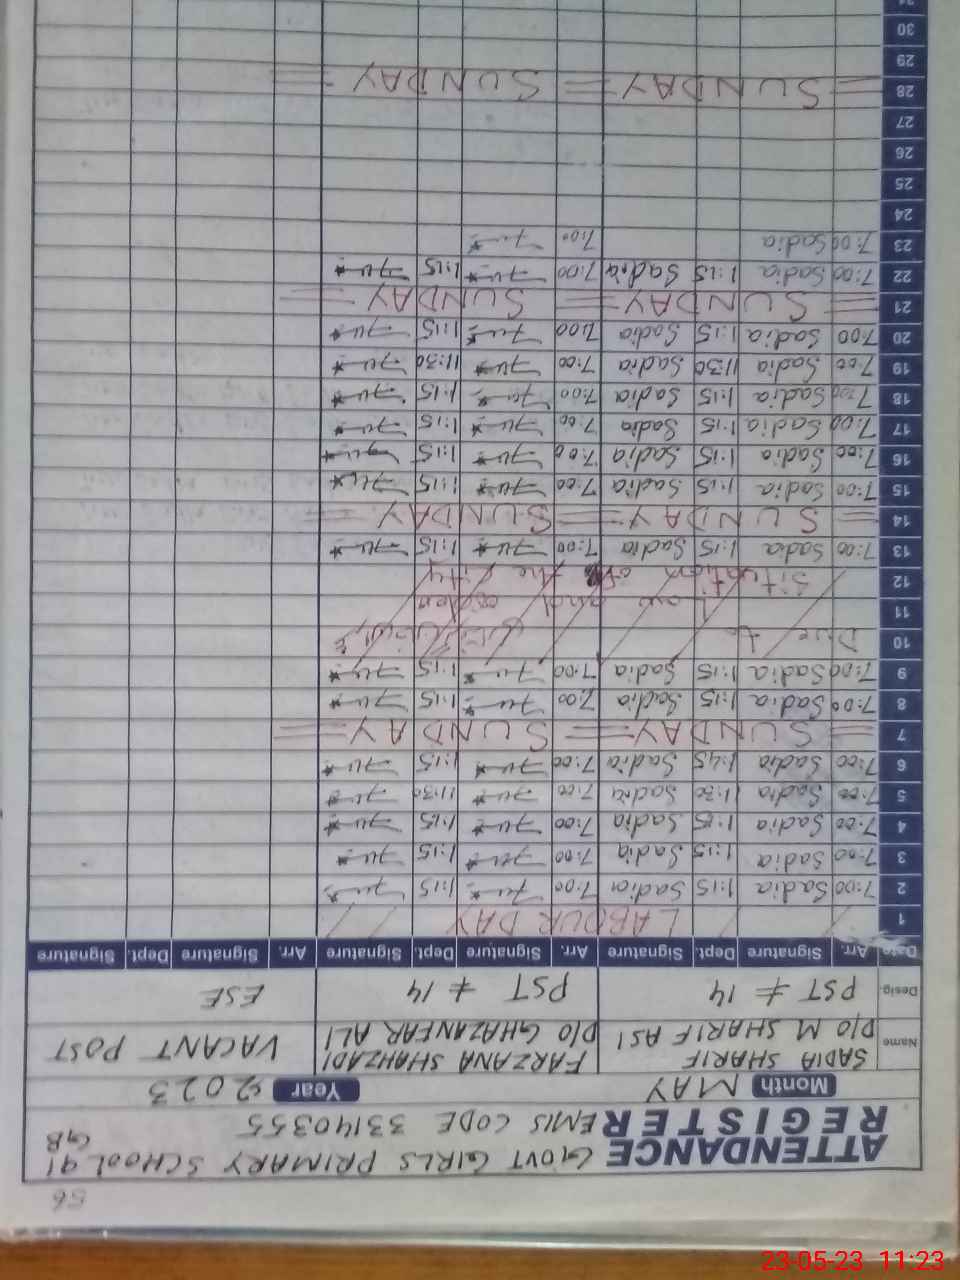 56
ATTENDANCE REGISTER
GOVT GIRLS PRIMARY SCHOOL 91 GB
EMIS CODE 33140355
Month MAY Year 2023
Name SADIA SHARIF D/O M SHARIF AS1 FARZANA SHAHZADI D/O GHAZANFAR ALI VACANT POST
Desig. PST # 14 PST # 14 ESE
Date Arr. Signature Dept. Signature Arr. Signature Dept. Signature Arr. Signature Dept. Signature
1 LABOUR DAY
2 7:00 Sadia 1:15 Sadia 7:00 1:15
3 7:00 Sadia 1:15 Sadia 7:00 1:15
4 7:00 Sadia 1:15 Sadia 7:00 1:15
5 7:00 Sadia 11:30 Sadia 7:00 11:30
6 7:00 Sadia 1:45 Sadia 7:00 1:15
7 = SUNDAY = = SUNDAY =
8 7:00 Sadia 1:15 Sadia 7:00 1:15
9 7:00 Sadia 1:15 Sadia 7:00 1:15
10 Due to
11 Law and orden
12 Situation of the city
13 7:00 Sadia 1:15 Sadia 7:00 1:15
14 = SUNDAY = = SUNDAY =
15 7:00 Sadia 1:15 Sadia 7:00 1:15
16 7:00 Sadia 1:15 Sadia 7:00 1:15
17 7:00 Sadia 1:15 Sadia 7:00 1:15
18 7:00 Sadia 1:15 Sadia 7:00 1:15
19 7:00 Sadia 11:30 Sadia 7:00 11:30
20 7:00 Sadia 1:15 Sadia 7:00 1:15
21 = SUNDAY = = SUNDAY =
22 7:00 Sadia 1:15 Sadia 7:00 1:15
23 7:00 Sadia 7:00
24
25
26
27
28 = SUNDAY = = SUNDAY =
29
30
31
23-05-23 11:23